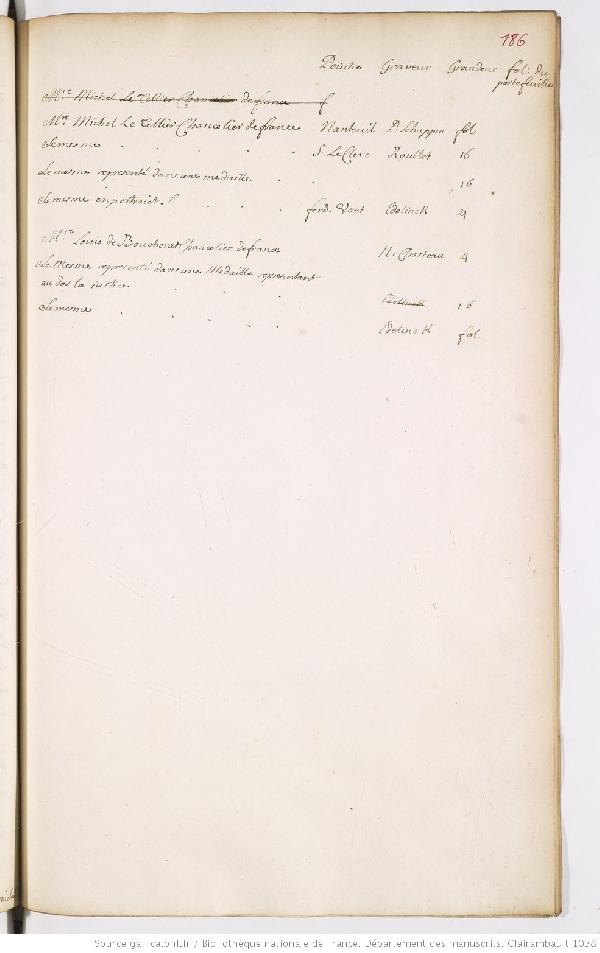 186
Peintre Graveur Grandeur fol. du
portefeuille
Mre Michel Le Tellier Chancelier de france
Mre Michel Le Tellier Chancelier de france Nanteuil P. Schuppen fol
Le mesme S. Le Clerc Roullet 16
Le mesme representé dans une medaille. 16
Le mesme en portrait. ferd. Voet Edelinck 4
Mre Louis de Boucherat Chancelier de france N. Chasteau 4
Le Mesme representé dans une Medaille representant
au dos la justice. 16
Le mesme Edelinck fol
Source gallica.bnf.fr / Bibliothèque nationale de France. Département des manuscrits. Clairambault 1038